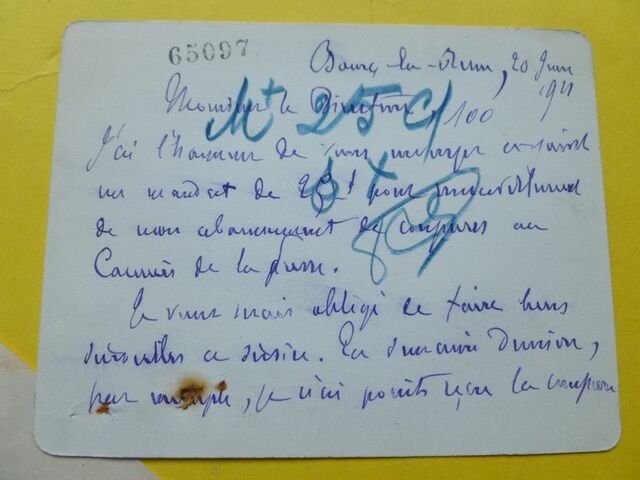 65097
Bourg-la-Reine, 20 Juin
1911
Monsieur le Directeur,
Mt 25 c/ 100
J'ai l'honneur de vous envoyer ci-joint
un mandat de pour renouvellement
de mon abonnement de coupures au
Courrier de la presse.
Je vous serais obligé de faire bons
ce service. La semaine dernière,
par exemple, je n'ai point reçu la coupure